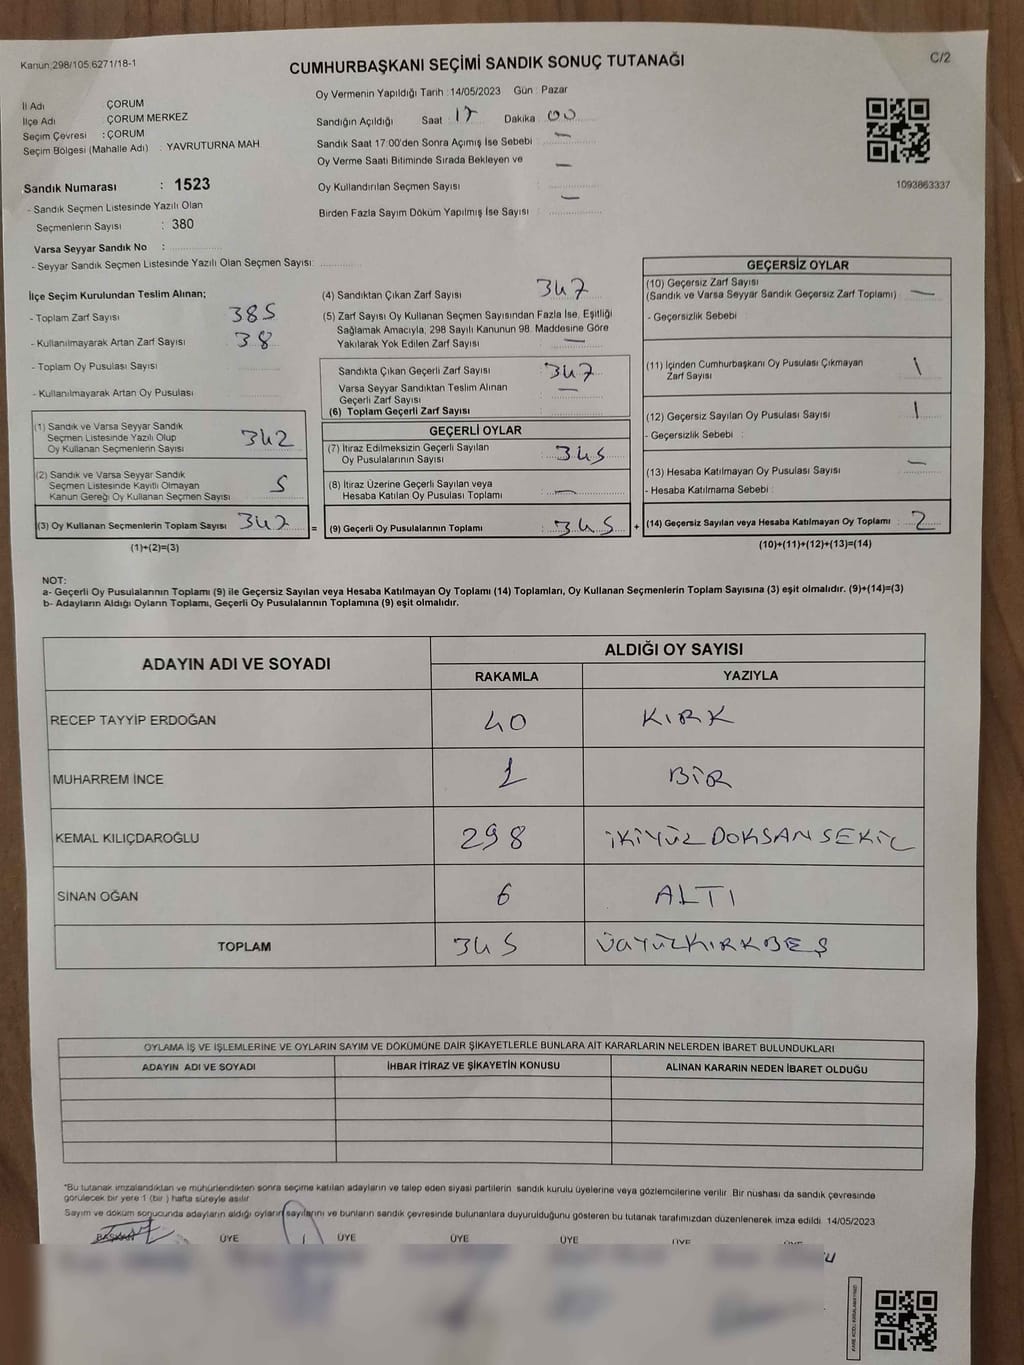 Kanun:298/105,6271/18-1
CUMHURBAŞKANI SEÇİMİ SANDIK SONUÇ TUTANAĞI
C/2
İl Adı ÇORUM
İlçe Adı ÇORUM MERKEZ
Seçim Çevresi : ÇORUM
Seçim Bölgesi (Mahalle Adı) : YAVRUTURNA MAH.
Sandık Numarası : 1523
- Sandık Seçmen Listesinde Yazılı Olan
Seçmenlerin Sayısı : 380
Varsa Seyyar Sandık No :
- Seyyar Sandık Seçmen Listesinde Yazılı Olan Seçmen Sayısı:
Oy Vermenin Yapıldığı Tarih :14/05/2023 Gün : Pazar
Sandığın Açıldığı Saat 17 Dakika 00
Sandık Saat 17:00'den Sonra Açımış İse Sebebi —
Oy Verme Saati Bitiminde Sırada Bekleyen ve
Oy Kullandırılan Seçmen Sayısı —
Birden Fazla Sayım Döküm Yapılmış İse Sayısı —
1093863337
İlçe Seçim Kurulundan Teslim Alınan;
- Toplam Zarf Sayısı 385
- Kullanılmayarak Artan Zarf Sayısı 38
- Toplam Oy Pusulası Sayısı
- Kullanılmayarak Artan Oy Pusulası
(1) Sandık ve Varsa Seyyar Sandık
Seçmen Listesinde Yazılı Olup
Oy Kullanan Seçmenlerin Sayısı 342
(2) Sandık ve Varsa Seyyar Sandık
Seçmen Listesinde Kayıtlı Olmayan
Kanun Gereği Oy Kullanan Seçmen Sayısı 5
(3) Oy Kullanan Seçmenlerin Toplam Sayısı 347 =
(1)+(2)=(3)
(4) Sandıktan Çıkan Zarf Sayısı 347
(5) Zarf Sayısı Oy Kullanan Seçmen Sayısından Fazla İse, Eşitliği
Sağlamak Amacıyla, 298 Sayılı Kanunun 98. Maddesine Göre
Yakılarak Yok Edilen Zarf Sayısı —
Sandıkta Çıkan Geçerli Zarf Sayısı : 347
Varsa Seyyar Sandıktan Teslim Alınan
Geçerli Zarf Sayısı —
(6) Toplam Geçerli Zarf Sayısı
GEÇERLİ OYLAR
(7) İtiraz Edilmeksizin Geçerli Sayılan
Oy Pusulalarının Sayısı 345
(8) İtiraz Üzerine Geçerli Sayılan veya
Hesaba Katılan Oy Pusulası Toplamı —
(9) Geçerli Oy Pusulalarının Toplamı : 345 +
GEÇERSİZ OYLAR
(10) Geçersiz Zarf Sayısı
(Sandık ve Varsa Seyyar Sandık Geçersiz Zarf Toplamı) —
- Geçersizlik Sebebi :
(11) İçinden Cumhurbaşkanı Oy Pusulası Çıkmayan
Zarf Sayısı 1
(12) Geçersiz Sayılan Oy Pusulası Sayısı 1
- Geçersizlik Sebebi :
(13) Hesaba Katılmayan Oy Pusulası Sayısı —
- Hesaba Katılmama Sebebi :
(14) Geçersiz Sayılan veya Hesaba Katılmayan Oy Toplamı : 2
(10)+(11)+(12)+(13)=(14)
NOT:
a- Geçerli Oy Pusulalarının Toplamı (9) ile Geçersiz Sayılan veya Hesaba Katılmayan Oy Toplamı (14) Toplamları, Oy Kullanan Seçmenlerin Toplam Sayısına (3) eşit olmalıdır. (9)+(14)=(3)
b- Adayların Aldığı Oyların Toplamı, Geçerli Oy Pusulalarının Toplamına (9) eşit olmalıdır.
ADAYIN ADI VE SOYADI
ALDIĞI OY SAYISI
RAKAMLA YAZIYLA
RECEP TAYYİP ERDOĞAN 40 KIRK
MUHARREM İNCE 1 BİR
KEMAL KILIÇDAROĞLU 298 İKİYÜZ DOKSAN SEKİZ
SİNAN OĞAN 6 ALTI
TOPLAM 345 ÜÇYÜZKIRKBEŞ
OYLAMA İŞ VE İŞLEMLERİNE VE OYLARIN SAYIM VE DÖKÜMÜNE DAİR ŞİKAYETLERLE BUNLARA AİT KARARLARIN NELERDEN İBARET BULUNDUKLARI
ADAYIN ADI VE SOYADI İHBAR İTİRAZ VE ŞİKAYETİN KONUSU ALINAN KARARIN NEDEN İBARET OLDUĞU
*Bu tutanak imzalandıktan ve mühürlendikten sonra seçime katılan adayların ve talep eden siyasi partilerin sandık kurulu üyelerine veya gözlemcilerine verilir. Bir nüshası da sandık çevresinde
görülecek bir yere 1 (bir ) hafta süreyle asılır.
Sayım ve döküm sonucunda adayların aldığı oyların sayılarını ve bunların sandık çevresinde bulunanlara duyurulduğunu gösteren bu tutanak tarafımızdan düzenlenerek imza edildi. 14/05/2023
BAŞKAN ÜYE ÜYE ÜYE ÜYE ÜYE ÜYE